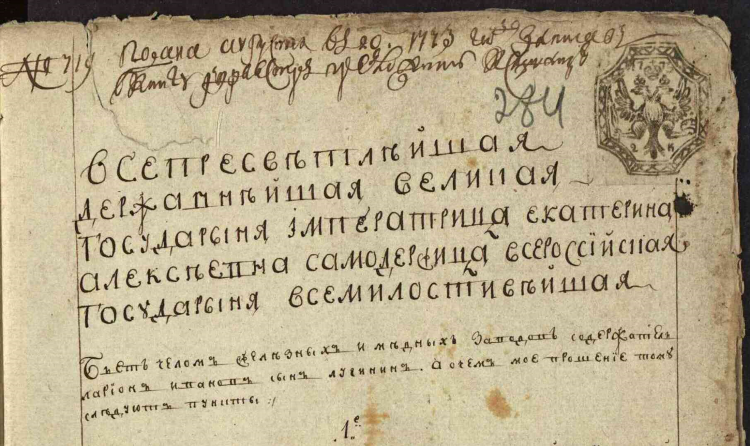 № 719 подана августа в 28 д. 1773 году записав
в книгу
284
ВСЕПРЕСВѢТЛѢЙШАЯ
ДЕРЖАВНѢЙШАЯ ВЕЛИКАЯ
ГОСУДАРЫНЯ ІМПЕРАТРИЦА ЕКАТЕРИНА
АЛЕКСѢЕВНА САМОДЕРЖИЦА ВСЕРОССІЙСКАЯ
ГОСУДАРЫНЯ ВСЕМИЛОСТИВѢЙШАЯ
Бьетъ челомъ желѣзныхъ и мѣдныхъ заводовъ содержатель
ларионъ ивановъ сынъ лугининъ. А о чемъ мое прошение тому
слѣдуютъ пункты:
1.е